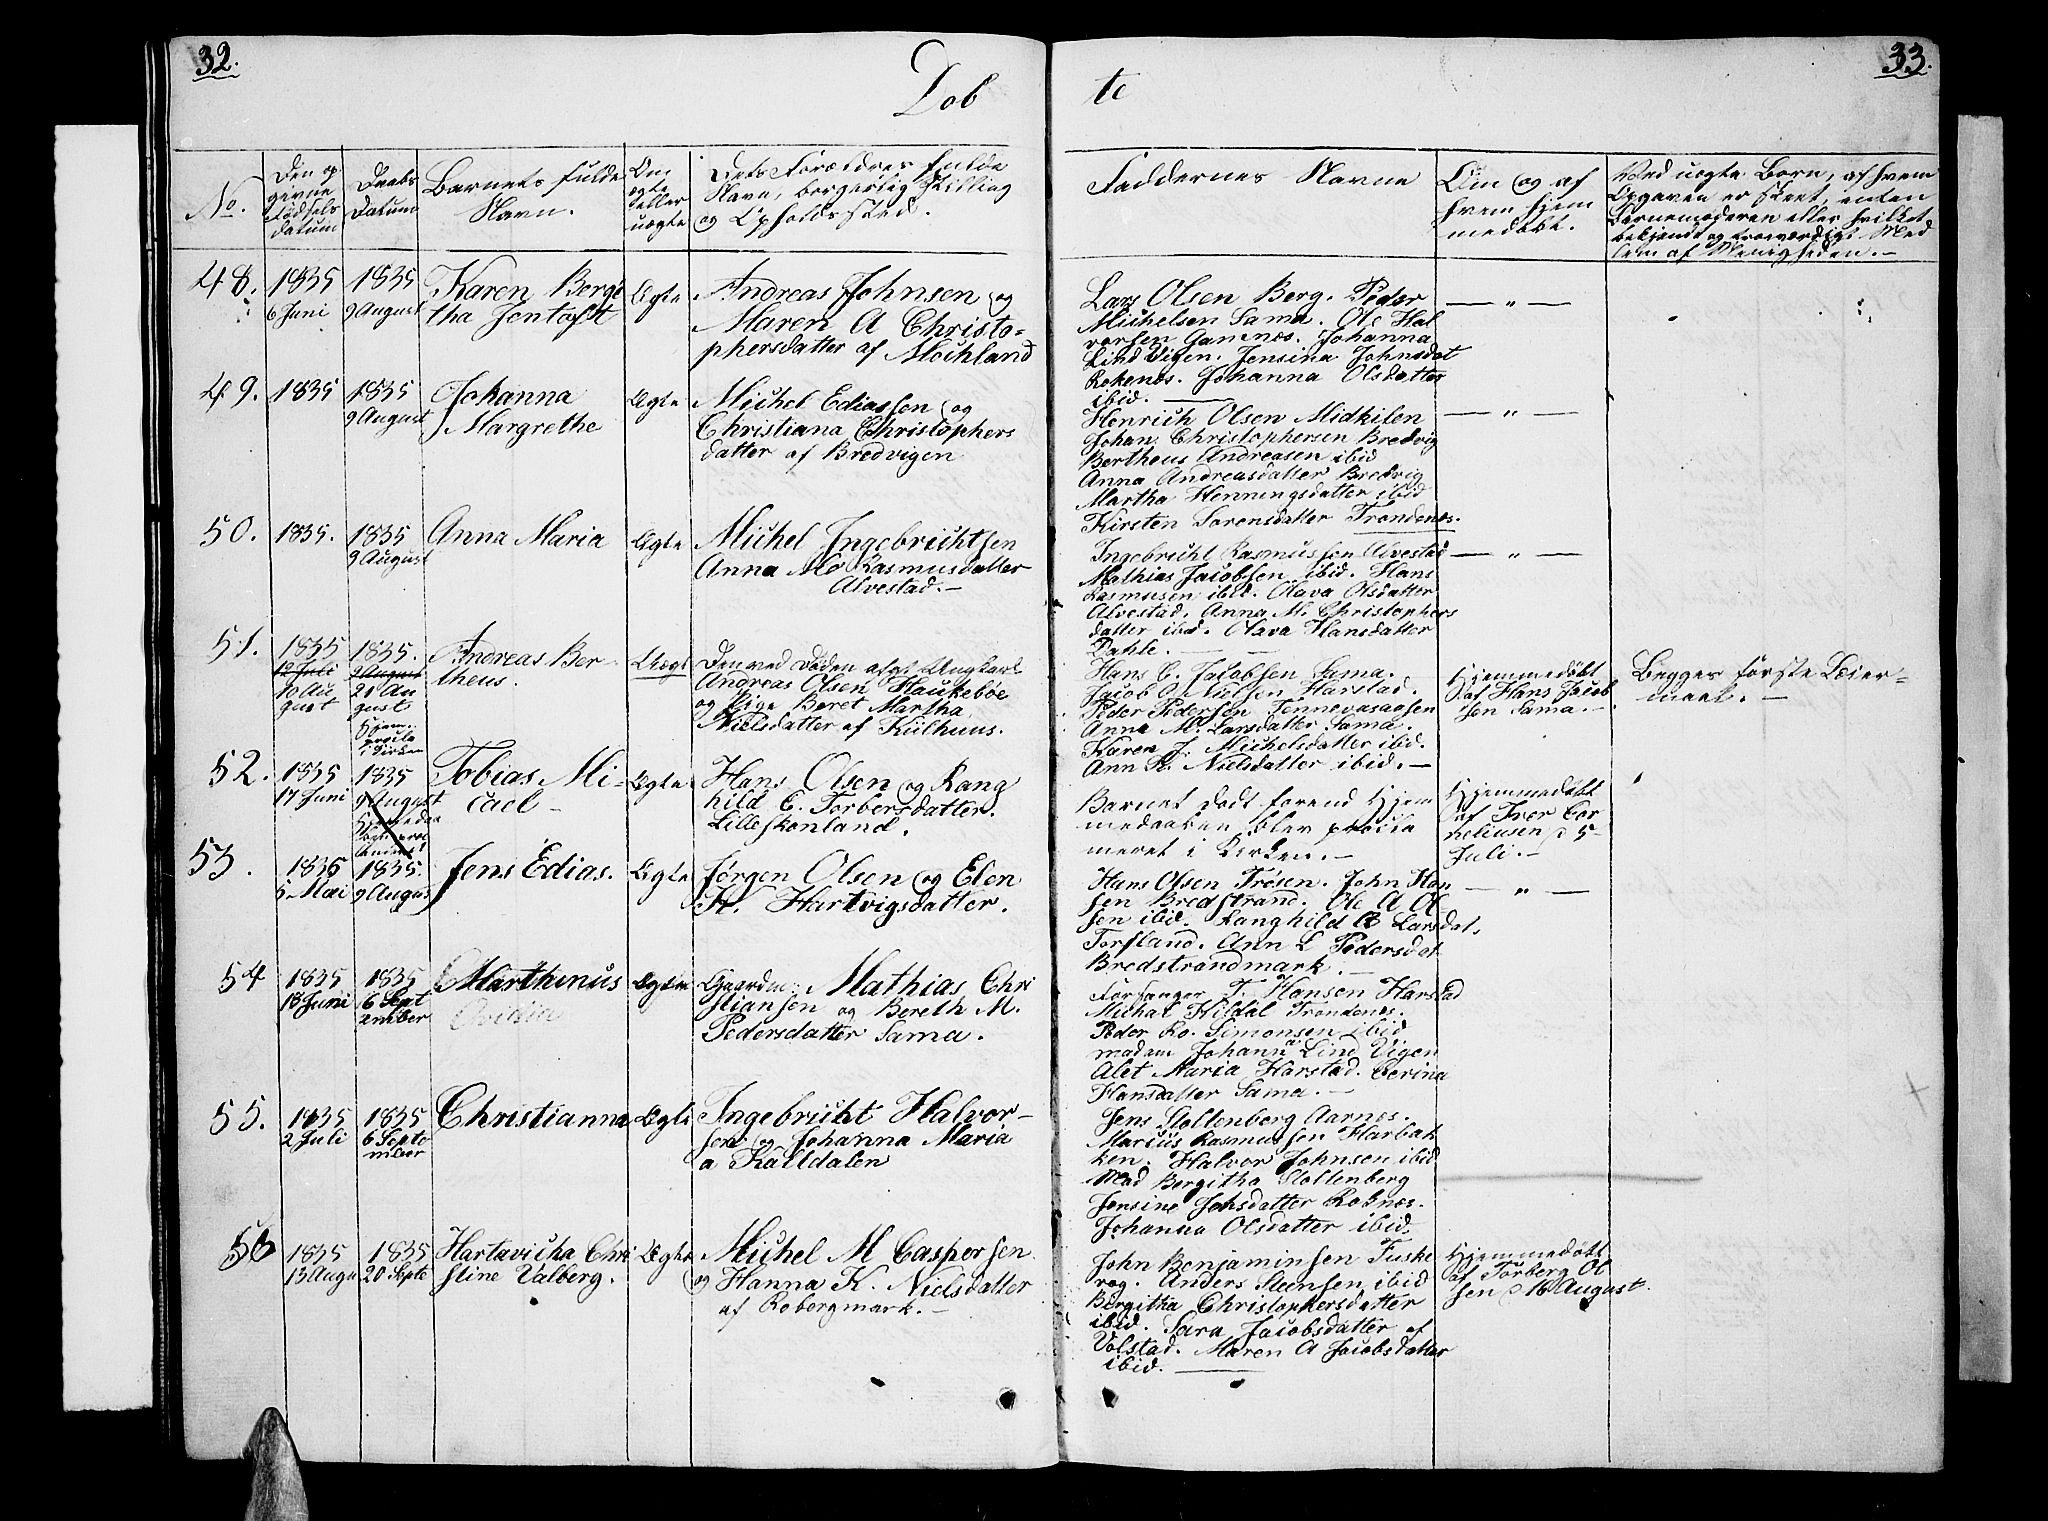 32.
33.
Döb
te
No.
Den op
givne
Fødsels
datum
Daabs
Datum
Barnets fulde
Navn.
Om
ægte
eller
uægte
Dets Forældres fulde
Navn, borgerlig Stilling
og Opholdssted.
Faddernes Navne
Om og af
hvem hjem
medøbt.
Ved uægte Børn, af hvem
Opgaven er skeet, enten
Barnemoderen eller hvilket
bekjendt og troeværdigt Med
lem af Menigheden.-
48.
1835
6 Juni
1835
9 August
Karen Bergi
tha Jentoft
Ægte
Andreas Johnsen og
Maren A Christo-
phersdatter af Mochland
Lars Olsen Berg. Peder
Michelsen Sama. Ole Hal
vorsen Gannæs. Johanna
Lind Vigen. Jensina Johnsdat
Rokenæs. Johanna Olsdatter
ibid.
— " —
49.
1835
1835
9 August
Johanna
Margrethe
Ægte
Michel Ediassen og
Christiana Christophers
datter af Bredvigen
Henrich Olsen Midkilen
Johan Christophersen Bredvig
Bertheus Andreasen ibid
Anna Andreasdatter Bredvig
Martha Henningsdatter ibid
Kirsten Sørensdatter Trondenæs.
— " —
50.
1835.
1835
9 August
Anna Maria
Ægte
Michel Ingebrichtsen
Anna M Rasmusdatter
Alvestad.-
Ingebricht Rasmussen Alvestad
Mathias Jacobsen ibid. Hans
Rasmusen ibid. Olava Olsdatter
Alvestad. Anna M. Christophers
datter ibid. Olava Hansdatter
Dahle. —
— " —
51.
1835
12 Juli
10 Au
gust
1835.
9 August
21 Au
gust
Andreas Ber-
theus.
Uægt
Den ved Døden afgt Ungkarl
Andreas Olsen Haukebøe
og Pige Beret Martha
Nielsdatter af Kiilhuus.
Hans C. Jacobsen Sama.
Jacob A Nielsen Harstad.
Peder Pedersen Tennevasaasen
Anna M. Larsdatter Sama.
Karen J. Michelsdatter ibid.
Ann K. Nielsdatter ibid.—
Hjemmedøbt
af Hans Jacob
sen Sama.-
Begges første Leier-
maal.-
52.
1835
17 Juni
1835
9 August
Tobias Mi-
cael-
Ægte
Hans Olsen og Rang
hild E. Torbersdatter.
Lilleskonland.
Barnet døde forend Hjem
medaaben blev procla
meret i Kirken.-
Hjemmedøbt
af Iver Cor
neliusen d 5-
Juli.-
53.
1835
5- Mai
1835.
9 Augus
Jens Edias.
Ægte
Jørgen Olsen og Elen
K. Hartvigsdatter.
Hans Olsen Trøsen. John Han
sen Bredstrand. Ole A Ol
sen ibid. Ranghild B Larsdat.
Torsland. Ann L Pedersdat
Bredstrandmark.-
— " —
54
1835
18 Juni
1835
6 Sept
ember
Marthinus
Ovidia
Ægte
Gaardm: Mathias Chri
stiansen og Bereth M.
Pedersdatter Sama.
Forsanger T. Hansen Harstad
Michal Hildal Trondenæs.
Peder Ro. Simonsen ibid
madam Johanna Lind Vigen
Alet Maria Harstad. Cerina
Hansdatter Sama.-
55.
1835
2 Juli
1835
6 Septe
mber
Christianna
Ægte
Ingebricht Halvor-
sen og Johanna Maria
a Kalldalen
Jens Stoltenberg Aarnes.
Marius Rasmussen Harbak
ken. Halvor Johnsen ibid
Mad Bergitha Stoltenberg
Jensine Johsdatter Roknæs.
Johanna Olsdatter ibid.
56
1835
13 Augu
1835
20 Septe
Hartavicha Chri
stine Valberg.
Ægte
Michel M Caspersen
og Hanna K. Nielsdatter
af Robergmark.-
John Benjaminsen Fuske
vog. Anders Steensen ibid
Bergitha Christophersdatter
ibid. Sara Jacobsdatter af
Volstad. Maren A Jacobsdatter
ibid.
Hjemmedøbt
af Torberg Ol
sen d 16 August.